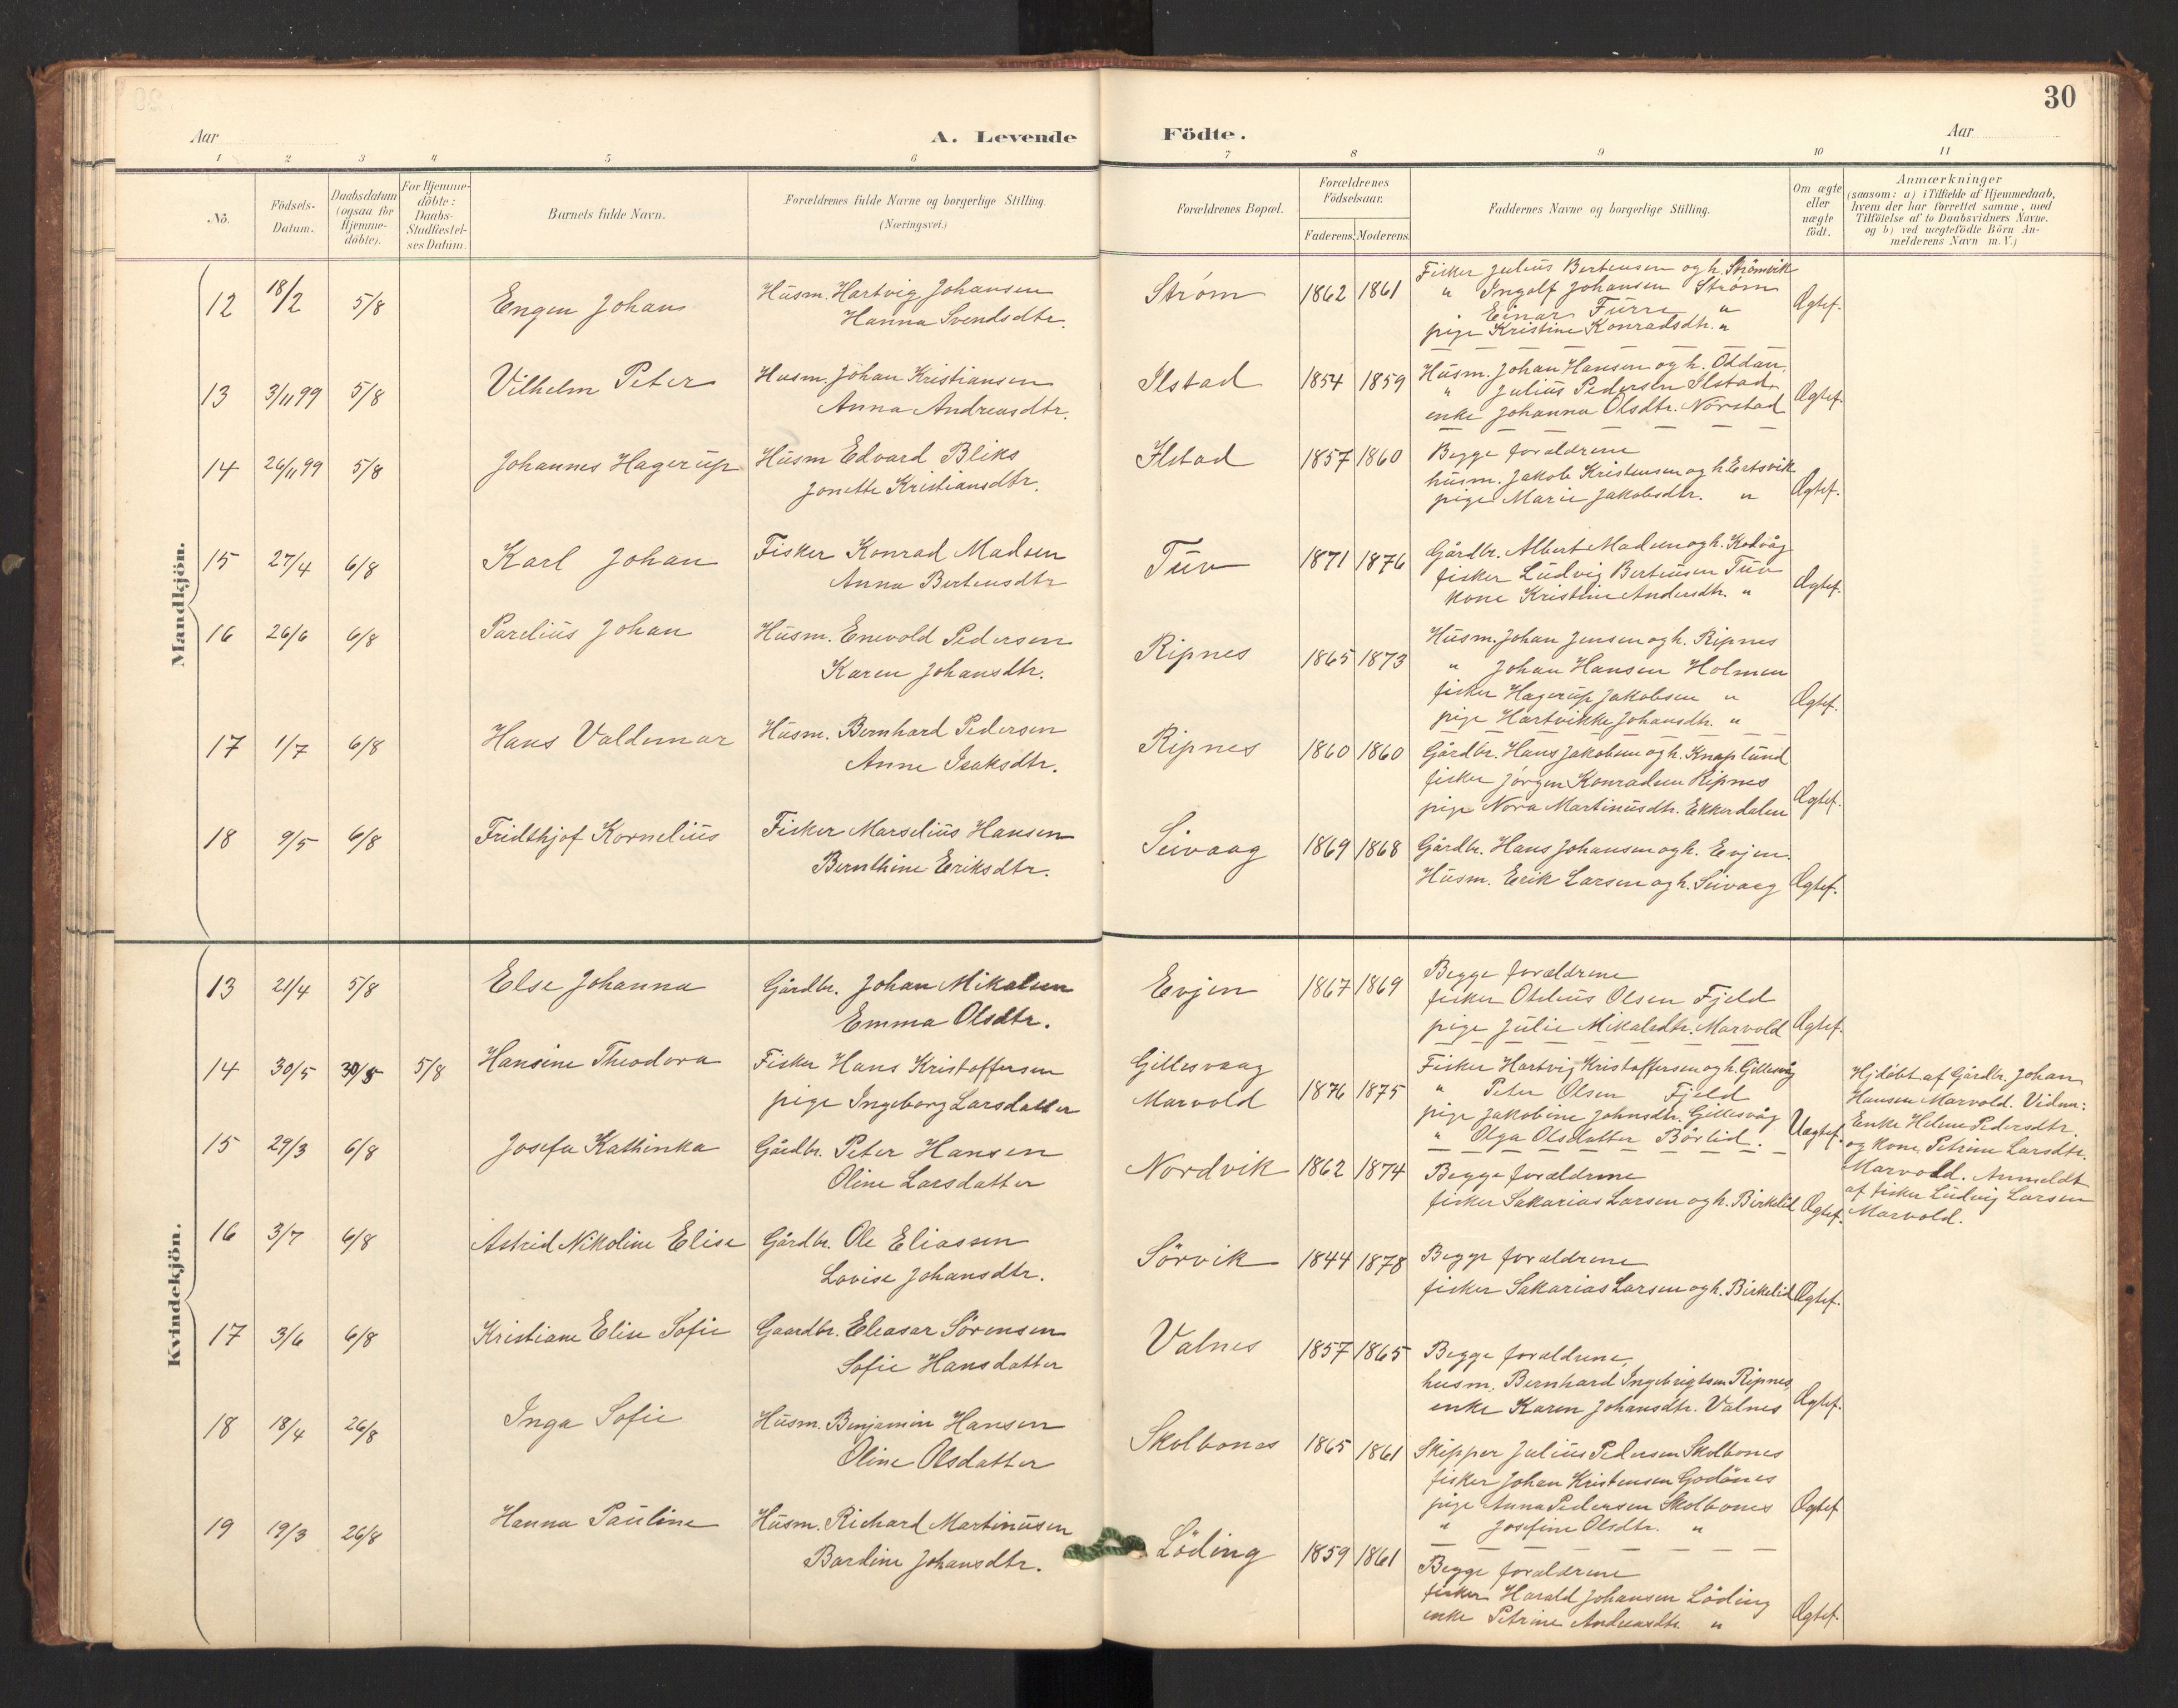 30
Aar
A. Levende Födte.
Aar
1 2 3 4 5 6 7 8 9 10 11
Nö.
Födsels-Datum.
Daabsdatum (ogsaa for Hjemme-döbte).
For Hjemme-döbte: Daabs-Stadfæstel-ses Datum.
Barnets fulde Navn.
Forældrenes fulde Navne og borgerlige Stilling.
(Næringsvei.)
Forældrenes Bopæl.
Forældrenes Födselsaar.
Faderens. Moderens.
Faddernes Navne og borgerlige Stilling.
Om ægte eller uægte födt.
Anmærkninger
(saasom: a) i Tilfælde af Hjemmedaab,
hvem der har forrettet samme, med
Tilföielse af to Daabsvidners Navne.
og b) ved uægtefödte Börn An-
melderens Navn m. V.)
Mandkjön.
12 18/2 5/8 Engen Johan
Husm. Hartvig Johansen
Hanna Svendsdtr.
Strøm 1862 1861
Fisker Julius Bertensen og h. Strømvik
" Ingolf Johansen Strøm
Einar Furre "
pige Kristine Konradsdtr. "
Ægtef.
13 3/11 99 5/8 Vilhelm Peter
Husm. Johan Kristiansen
Anna Andreasdtr.
Ilstad 1854 1859
Husm. Johan Hansen og h. Oddan.
" Julius Pedersen Ilstad
enke Johanna Olsdtr. Nørstad
Ægtef.
14 26/11 99 5/8 Johannes Hagerup
Husm Edvard Bliks
Jonette Kristiansdtr.
Ilstad 1857 1860
Begge forældrene
husm. Jakob Kristensen og h. Ertsvik
pige Marie Jakobsdtr. "
Ægtef.
15 27/4 6/8 Karl Johan
Fisker Konrad Madsen
Anna Bertensdtr
Tuv 1871 1876
Gårdbr. Albert Madsen og h. Kodvåg
fisker Ludvig Bertensen Tuv
kone Kristine Andersdtr. "
Ægtef.
16 26/6 6/8 Parelius Johan
Husm. Enevold Pedersen
Karen Johansdtr.
Ripnes 1865 1873
Husm. Johan Jensen og h. Ripnes
" Johan Hansen Holmen
fisker Hagerup Jakobsen "
pige Hartvikke Johansdtr. "
Ægtef.
17 1/7 6/8 Hans Valdemar
Husm. Bernhard Pedersen
Anne Isaksdtr.
Ripnes 1860 1860
Gårdbr. Hans Jakobsen og h. Knaplund
fisker Jørgen Konradsen Ripnes
pige Nora Martinusdtr. Ekkerdalen
Ægtef.
18 9/5 6/8 Fridthjof Kornelius
Fisker Marselius Hansen
Bernthine Eriksdtr.
Seivaag 1869 1868
Gårdbr. Hans Johansen og h. Evjen.
Husm. Erik Larsen og h. Seivaag
Ægtef.
Kvindekjön.
13 21/4 5/8 Else Johanna
Gårdbr. Johan Mikalsen
Emma Olsdtr.
Evjen 1867 1869
Begge forældrene
fisker Otelius Olsen Fjeld
pige Julie Mikalsdtr. Marvold
Ægtef.
14 30/5 30/5 5/8 Hansine Theodora
Fisker Hans Kristoffersen
pige Ingeborg Larsdatter
Gillesvaag
Marvold 1876 1875
Fisker Hartvig Kristoffersen og h. Gillesvåg
" Peter Olsen Fjeld
pige Jakobine Johnsdtr. Gillesvåg
" Olga Olsdatter Børlid.
Uægtef.
Hjdøbt af Gårdbr. Johan
Hansen Marvold. Vidner:
Enke Helene Pedersdtr.
og kone Petrine Larsdtr.
Marvold. Anmeldt
af fisker Ludvig Larsen
Marvold.
15 29/3 6/8 Josefa Kathinka
Gårdbr. Peter Hansen
Oline Larsdatter
Nordvik 1862 1874
Begge forældrene
fisker Sakarias Larsen og h. Birkelid
Ægtef.
16 3/7 6/8 Astrid Nikoline Elise
Gårdbr. Ole Eliassen
Lovise Johansdtr.
Sørvik 1844 1878
Begge forældrene
fisker Sakarias Larsen og h. Birkelid
Ægtef.
17 3/6 6/8 Kristiane Elise Sofie
Gaardbr. Eleasar Sørensen
Sofie Hansdatter
Valnes 1857 1865
Begge forældrene,
husm. Bernhard Ingebrigtsen Ripnes,
enke Karen Johansdtr. Valnes
Ægtef.
18 18/4 26/8 Inga Sofie
Husm. Benjamin Hansen
Oline Olsdatter
Skolbones 1865 1861
Skipper Julius Pedersen Skolbones
fisker Johan Kristensen Godønes
pige Anna Pedersen Skolbones
" Josefine Olsdtr. "
Ægtef
19 19/3 26/8 Hanna Pauline
Husm. Richard Martinusen
Bardine Johansdtr.
Löding 1859 1861
Begge forældrene
fisker Harald Johansen Löding
enke Petrine Andreasdtr. "
Ægtef.